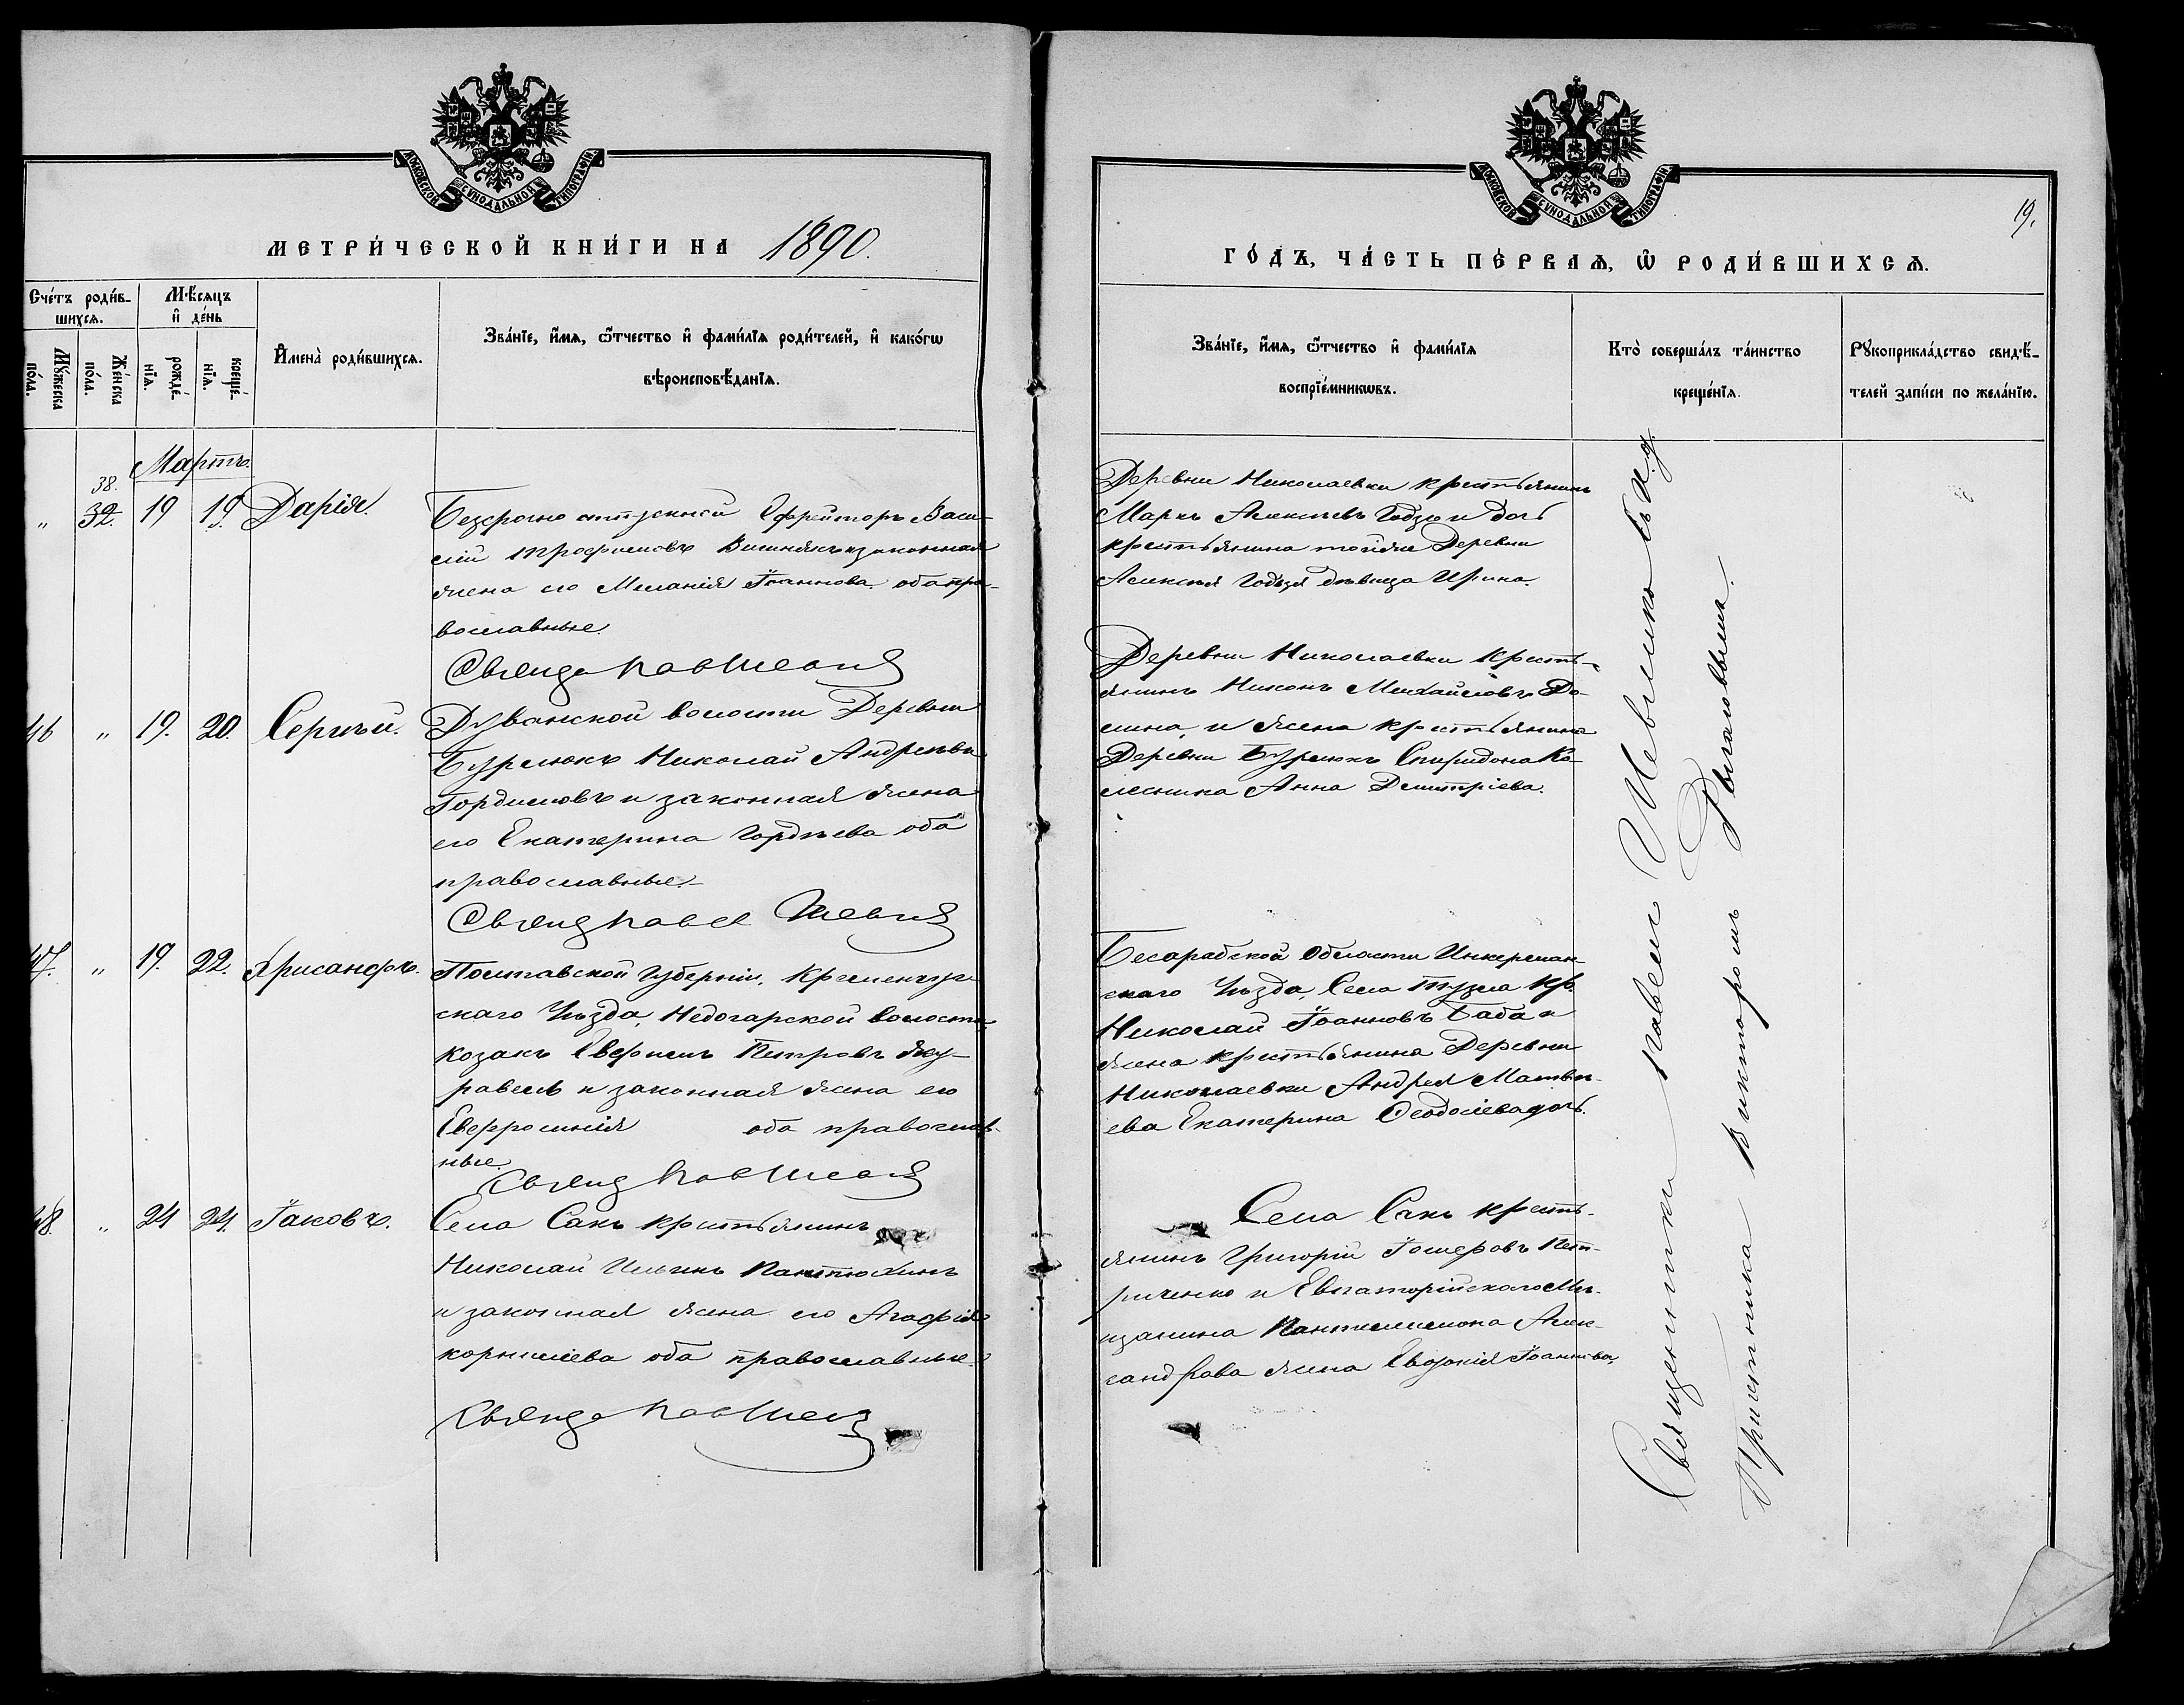 МОСКОВСКОЙ СѴНОДАЛЬНОЙ ТИПОГРАФІИ
МЕТРИ́ЧЕСКОЙ КНИ́ГИ НА 1890.
Сче́тъ роди́в-
шихсѧ.
Мꙋжеска
по́ла.
Же́нска
по́ла.
Мѣ́сѧцъ
и҆ де́нь
рожде́-
нїѧ.
креще́-
нїѧ.
И҆мена̀ роди́вшихсѧ.
Зва́нїе, и҆́мѧ, ѻ҆́тчество и҆ фами́лїѧ роди́телей, и҆ како́гѡ
вѣроисповѣ́данїѧ.
Мартъ.
38.
" 32. 19 19 Дарія.
Безсрочно отпускной Ефрейторъ Васи-
лій Трофимовъ Вишнякъ и законная
жена его Меланія Іоаннова. оба пра-
вославные.
46 " 19. 20. Сергѣй.
Дуванской волости Деревни
Бурлюкъ Николай Андреевъ
Гордиловъ и законная жена
его Екатерина Гордѣева оба
православные.
47. " 19. 22. Хрисанфъ.
Полтавской Губерніи, Кременчуг-
скаго Уѣзда, Недогарской волости
козакъ Евфимъ Петровъ Жу-
равель и законная жена его
Евфросинія оба православ-
ные.
48. " 24 24. Іаковъ.
Села Сакъ крестьянинъ
Николай Ильинъ Пантюхинъ
и законная жена его Агафія
Корнилiева оба православные.
МОСКОВСКОЙ СѴНОДАЛЬНОЙ ТИПОГРАФІИ
19.
ГО́ДЪ, ЧА́СТЬ ПЕ́РВАѦ, Ѡ҆ РОДИ́ВШИХСѦ.
Зва́нїе, и҆́мѧ, ѻ҆́тчество и҆ фами́лїѧ
воспрїе́мникѡвъ.
Кто̀ соверша́лъ та́инство
креще́нїѧ.
Рꙋкоприкла́дство свидѣ́-
телей за́писи по жела́нїю.
Деревни Николаевки крестьянинъ
Маркъ Алексѣевъ Годзь и дочь
крестьянина тойже Деревни
Алексѣя Годзя дѣвица Ирина.
Деревни Николаевки Кресть-
янинъ Никонъ Михайловъ До-
лина, и жена крестьянина
Деревни Бурлюкъ Спиридона Ко-
лесника Анна Димитріева.
Бесарабской Области Анкерман-
скаго Уѣзда, Села Тузла Кр.
Николай Іоанновъ Баба и
жена крестьянина Деревни
Николаевки Андрея Матвѣ-
ева Екатерина Ѳеодосіева
Села Сакъ кресть-
янинъ Григорій Петр-
риченко и Евпаторійскаго Мѣ-
щанина Пантелеимона Алек-
сандрова жена Евдокія Іоаннова.
Священникъ Павелъ съ и.д.
Причетника Викторомъ